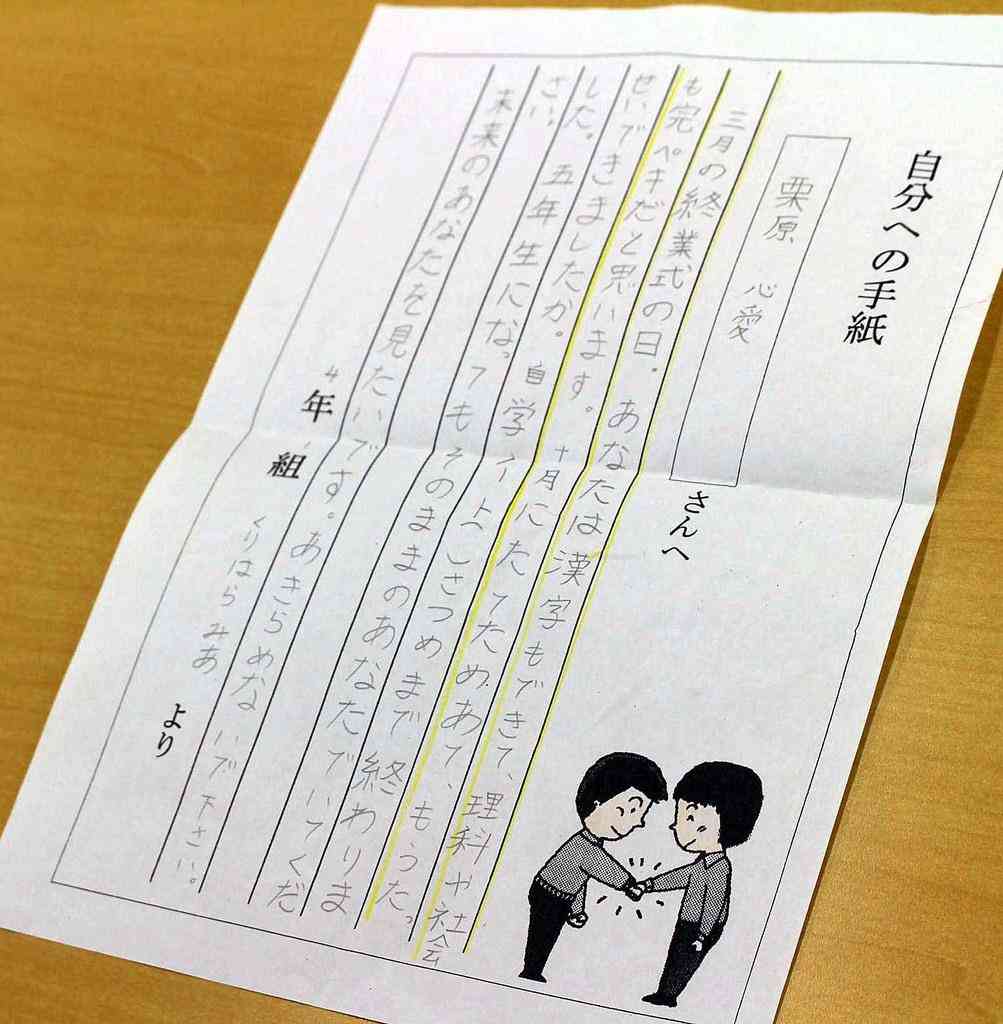 自分への手紙
栗原 心愛 さんへ
三月の終業式の日。あなたは漢字もできて、理科や社会
も完ペキだと思います。十月にたてためあて、もうたっ
せいできましたか。自学ノート二さつめまで終わりま
した。五年生になってもそのままのあなたでいてくだ
さい。
未来のあなたを見たいです。あきらめないで下さい。
4年 組 くりはらみあ より